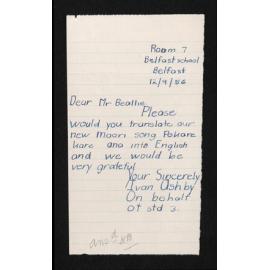 Room 7
Belfast school
Belfast
12/9/86
Dear Mr Beattie
Please
would you translate our
new Maori song Pokare
kare ana into English
and we would be
very grateful
Your Sincerely
Ivan Ashby
On behalf
of std 3.